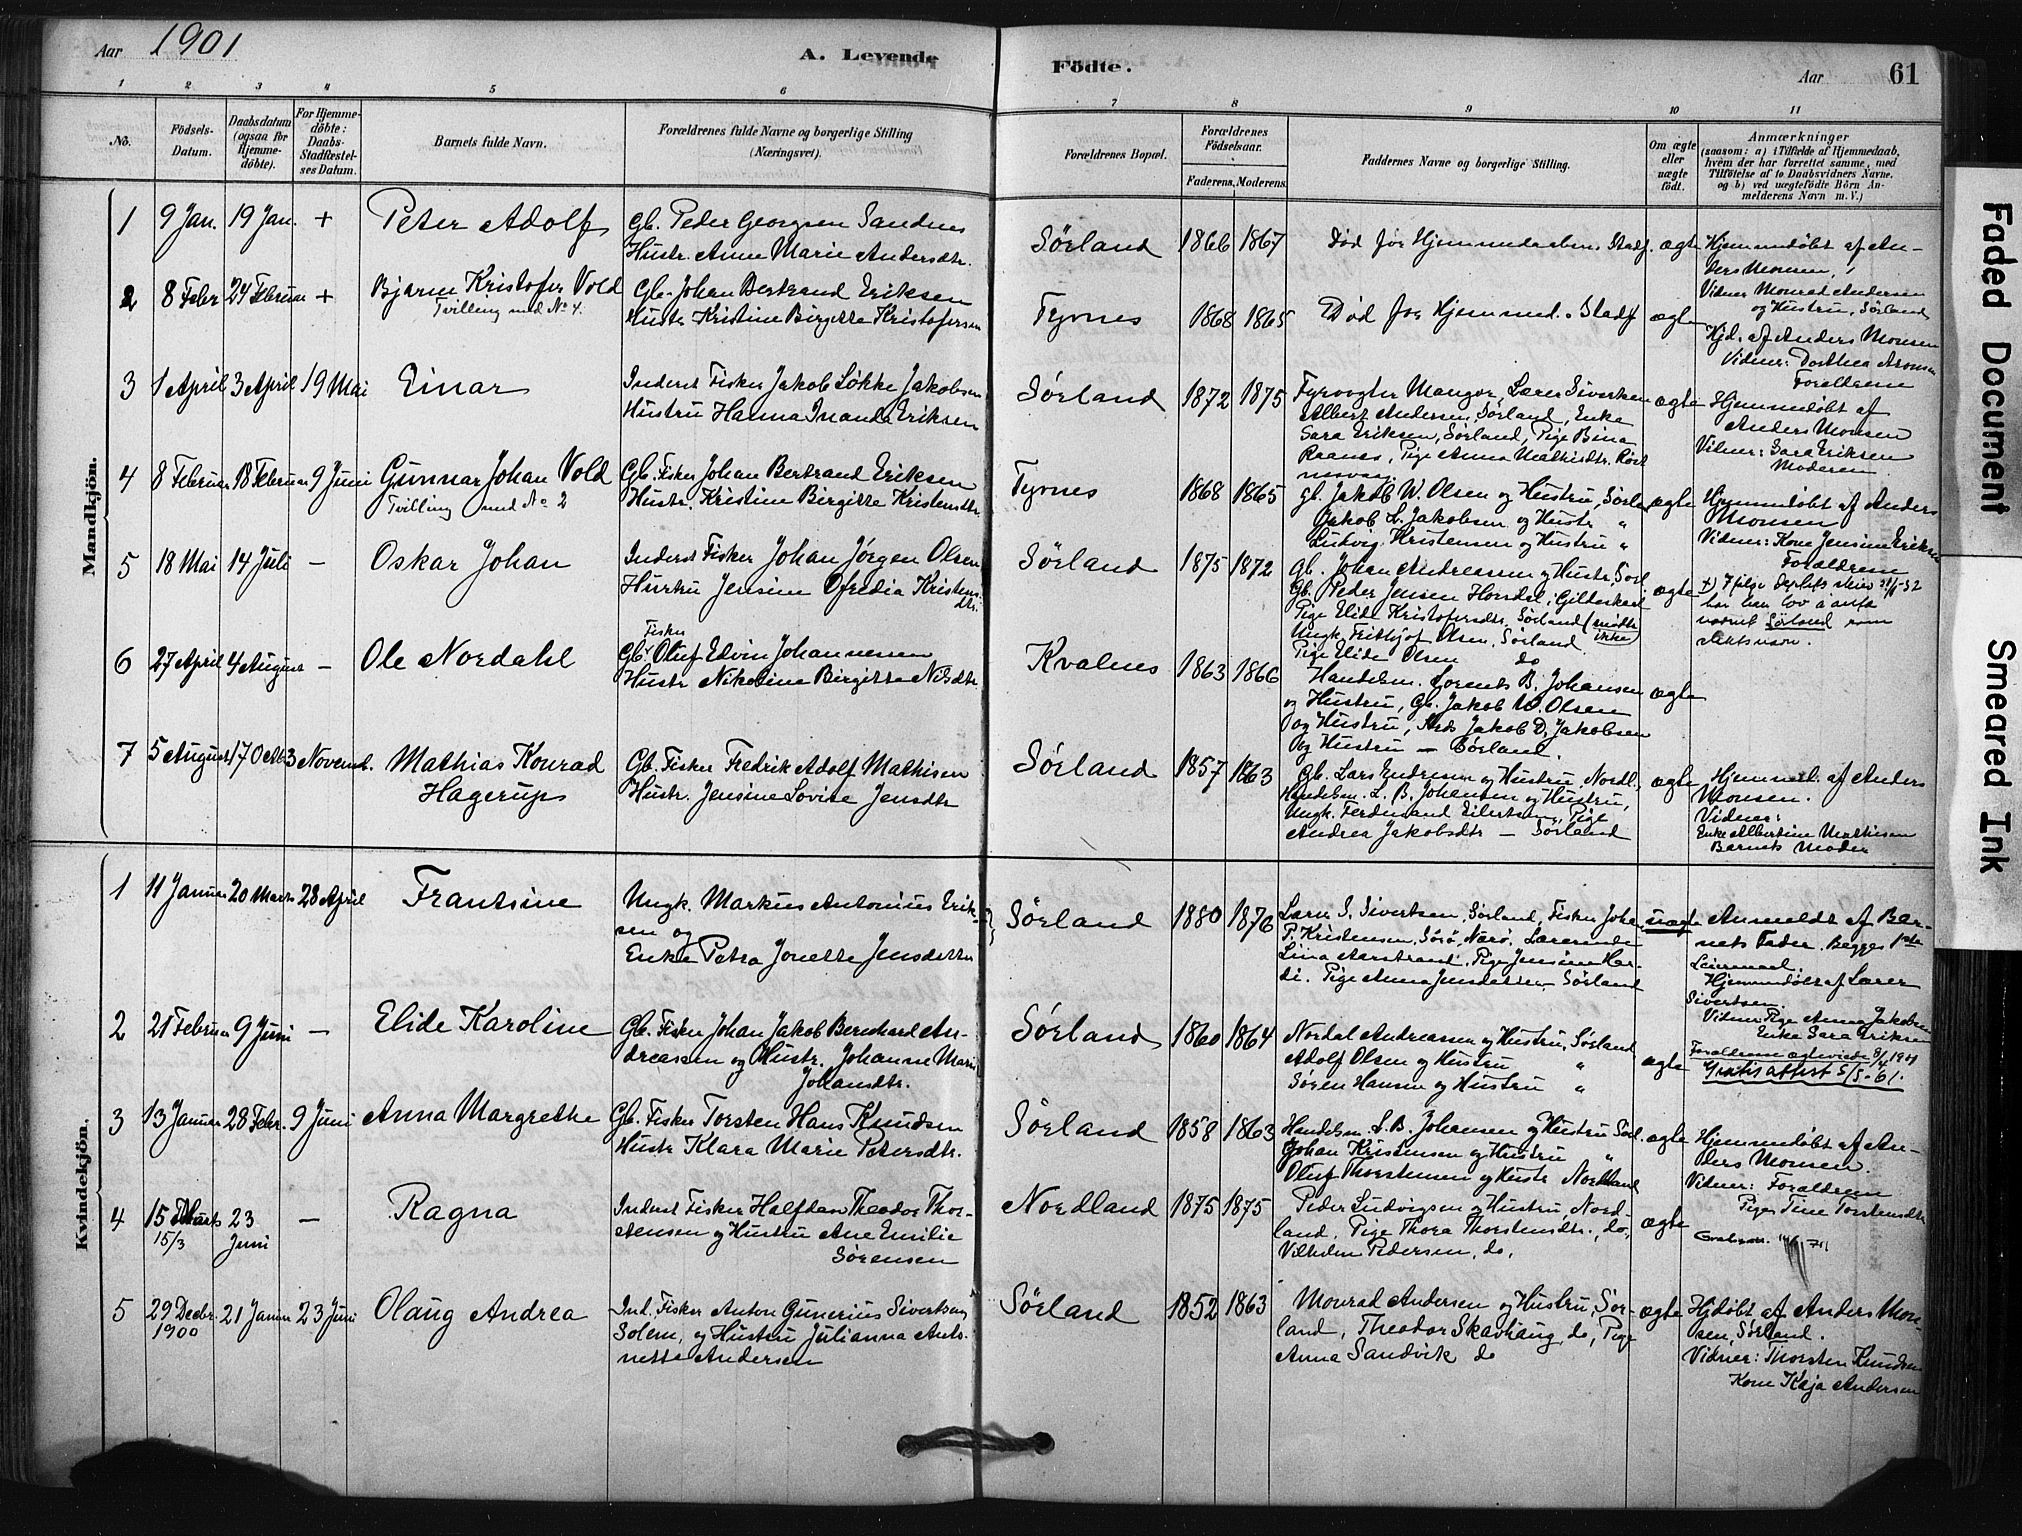 Aar 1901
A. Levende
Födte.
Aar
61
1 2 3 4 5 6 7 8 9 10 11
No.
Födsels-
Datum.
Daabsdatum
(ogsaa for
Hjemme-
döbte).
For Hjemme-
döbte:
Daabs-
Stadfæstel-
ses Datum.
Barnets fulde Navn.
Forældrenes fulde Navne og borgerlige Stilling
(Næringsvei).
Forældrenes Bopæl.
Forældrenes
Födselsaar.
Faderens. Moderens.
Faddernes Navne og borgerlige Stilling.
Om ægte
eller
uægte
födt.
Anmærkninger
(saasom: a) i Tilfælde af Hjemmedaab,
hvem der har forrettet samme, med
Tilföielse af to Daabsvidners Navne,
og b) ved uægtefödte Börn An-
melderens Navn m. V.)
Mandkjön.
1 9 Jan. 19 Jan. +
Peter Adolf
Gb. Peder Georgsen Sandnes
Hustr. Anne Marie Andersdtr.
Sørland 1866 1867
Død før Hjemmedaabens Stadf. ægte
Hjemmedøbt af An-
ders Monsen,
Vidner Monrad Andersen
og Hustru, Sørland
2 8 Febr 24 Februar +
Bjarne Kristofer Vold
Tvilling med No 4.
Gb. Johan Bertrand Eriksen
Hustr. Kristine Birgitte Kristofersen
Tyvnes 1868 1865
Død før Hjemmed. Stadf ægte
Hjd. af Anders Monsen
Vidner: Dorthea Aronsen
Forældrene
3 1 April 3 April 19 Mai
Einar
Inderst Fisker Jakob Løkke Jakobsen
Hustru Hanna Inanda Eriksen
Sørland 1872 1875
Fyrvogter Mangor, Lærer Sivertsen
Albert Andersen, Sørland, Enke
Sara Eriksen, Sørland, Pige Bina
Raanes, Pige Anna Mathisdtr. Røst
ægte
Hjemmedøbt af
Anders Monsen
Vidner: Sara Eriksen
Moderen
4 8 Februar 18 Februar 9 Juni
Gunnar Johan Vold
Tvilling med No 2
Gb. Fisker Johan Bertrand Eriksen
Hustr. Kristine Birgitte Kristensdtr.
Tyvnes 1868 1865
Gb. Jakob W. Olsen og Hustru, Sørl.
Jakob L. Jakobsen og Hustr. "
Ludvig Kristensen og Hustru "
ægte
Hjemmedøbt af Anders
Monsen
Vidner: Kone Jensine Eriksen
Forældrene
5 18 Mai 14 Juli –
Oskar Johan
Inderst Fisker Johan Jørgen Olsen
Hustru Jensine Ofredia Kristens-
dtr.
Sørland 1875 1872
Gb. Johan Andreassen og Hustr. Sørl
Gb. Peder Jensen Horsdal, Gilderskaal
Pige Elide Kristofersdtr. Sørland (mødte
ikke)
Ungk. Frithjof Olsen, Sørland
Pige Elide Olsen do
ægte
+) Ifølge
har han lov å anta
navnet Sørland som
slektsnavn.
6 27 April 4 August –
Ole Nordahl
Fisker
Gb. Oluf Edvin Johannesen
Hustr. Nikoline Birgitte Nilsdtr.
Kvalnes 1863 1866
Handelsm. Lorents B. Johansen
og Hustru, Gb. Jakob W. Olsen
og Hustru, Jakob D. Jakobsen
og Hustru – Sørland.
ægte
7 5 August 17 Octb. 3 Novemb.
Mathias Konrad
Hagerup
Gb. Fisker Fredrik Adolf Mathisen
Hustr. Jensine Lovise Jensdtr
Sørland 1857 1863
Gb. Lars Endresen og Hustru, Nordl.
Handelsm. L. B. Johansen og Hustru,
Ungk. Ferdinand Eilertsen, Pige
Andrea Jakobsdtr – Sørland
ægte
Hjemmed. af Anders
Monsen.
Vidner:
Enke Albertine Mathisen
Barnets Moder
Kvindekjön.
1 11 Januar 20 Marts 28 April
Frantsine
Ungk. Markus Antonius Erik-
sen og
Enke Petra Jonette Jensdatter
Sørland 1880 1876
Lærer S. Sivertsen, Sørland, Fisker Johan
P. Kristensen, Sørø, Nærø, Lærerinde
Lina Aarstrand, Pige Jensine Har-
di. Pige Anna Jensdatter, Sørland
uægte
Anmeldt af Bar-
nets Fader. Begges 1ste
Leiermaal.
Hjemmedøbt af Lærer
Sivertsen.
Vidner Pige Anna Jakobsen
Enke Sara Eriksen
Forældrene ægteviede 8/4 1901
Gratis attest 5/5-61.
2 21 Februar 9 Juni –
Elide Karoline
Gb. Fisker Johan Jakob Bernhard An-
dreassen og Hustr. Johanne Marie
Johansdtr.
Sørland 1860 1864
Nordal Andreassen og Hustru, Sørland
Adolf Olsen og Hustru "
Søren Hansen og Hustru "
ægte
3 13 Januar 28 Febr. 9 Juni
Anna Margrethe
Gb. Fisker Torsten Hans Knudsen
Hustr Klara Marie Petersdtr.
Sørland 1858 1863
Handelsm. L. B. Johansen og Hustru Sørl.
Johan Kristensen og Hustru "
Oluf Thorstensen og Hustr Nordland
ægte
Hjemmedøbt af An-
ders Monsen.
Vidner: Forældrene
Pige Tine Torstensdtr
4 15 Marts 23
15/3 Juni –
Ragna
Inderst Fisker Halfdan Theodor Thor-
stensen og Hustru Ane Emilie
Sørensen
Nordland 1875 1875
Peder Ludvigsen og Hustru, Nord-
land, Pige Thora Thorstensdtr., do,
Vilhelm Pedersen, do,
ægte
5 29 Decbr. 21 Januar 23 Juni
1900
Olaug Andrea
Ind. Fisker Anton Gunerius Sivertsen
Solem, og Hustru Julianna Anto-
nette Andersen
Sørland 1852 1863
Monrad Andersen og Hustru, Sør-
land, Theodor Skavhaug do, Pige
Anna Sandvik do
ægte
Hjdøbt af Anders Mon-
sen, Sørland.
Vidner: Thorsten Knudsen
Kone Kaja Andersen
Faded Document
Smeared Ink